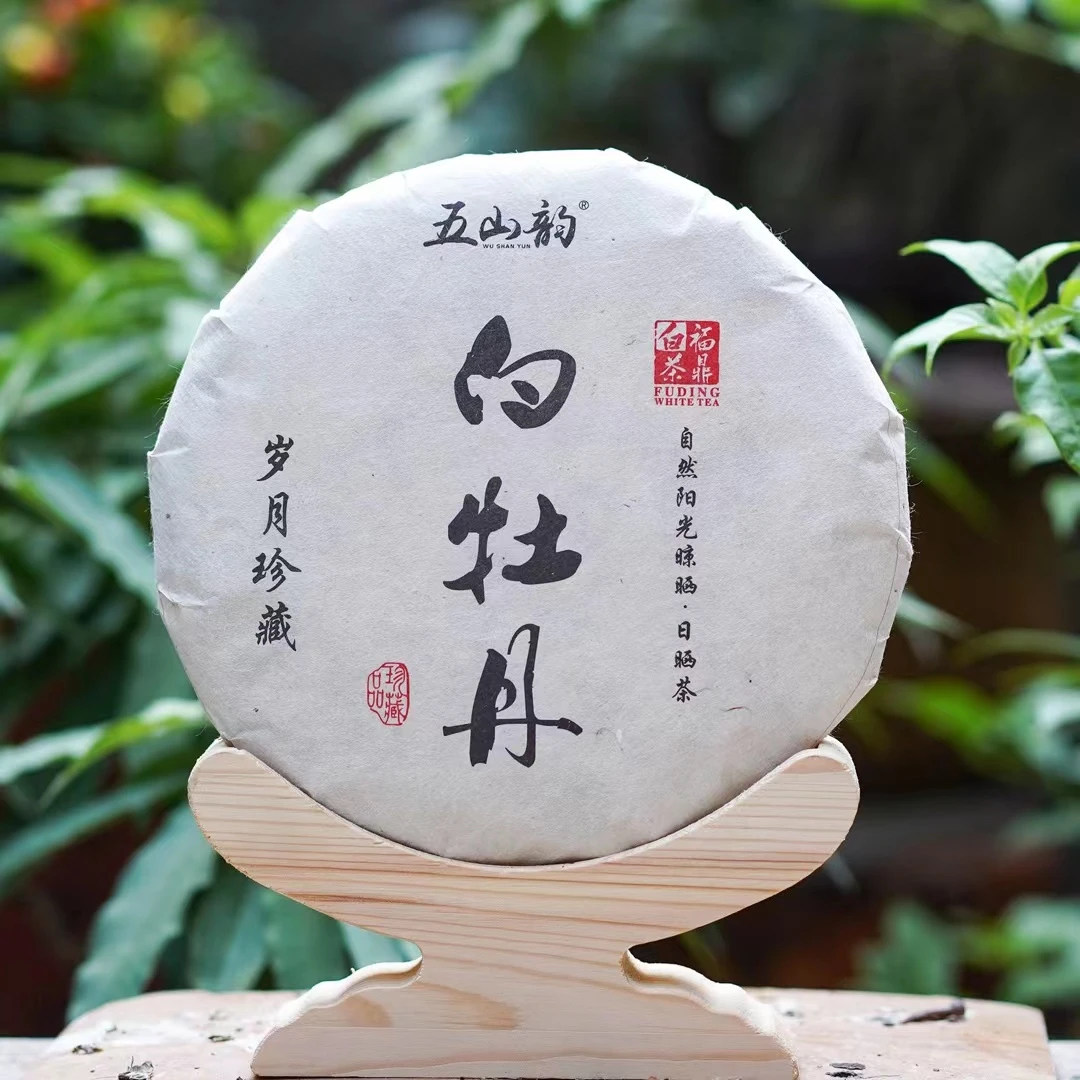 五山韵®
WU SHAN YUN
白牡丹
福鼎
白茶
FUDING
WHITE TEA
自然阳光晾晒·日晒茶
岁月珍藏
珍藏品